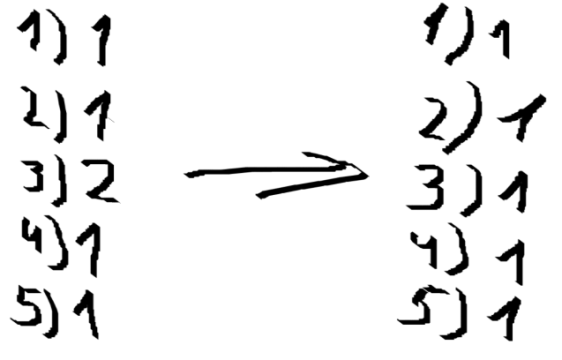 1) 1
2) 1
3) 2
4) 1
5) 1
1) 1
2) 1
3) 1
4) 1
5) 1